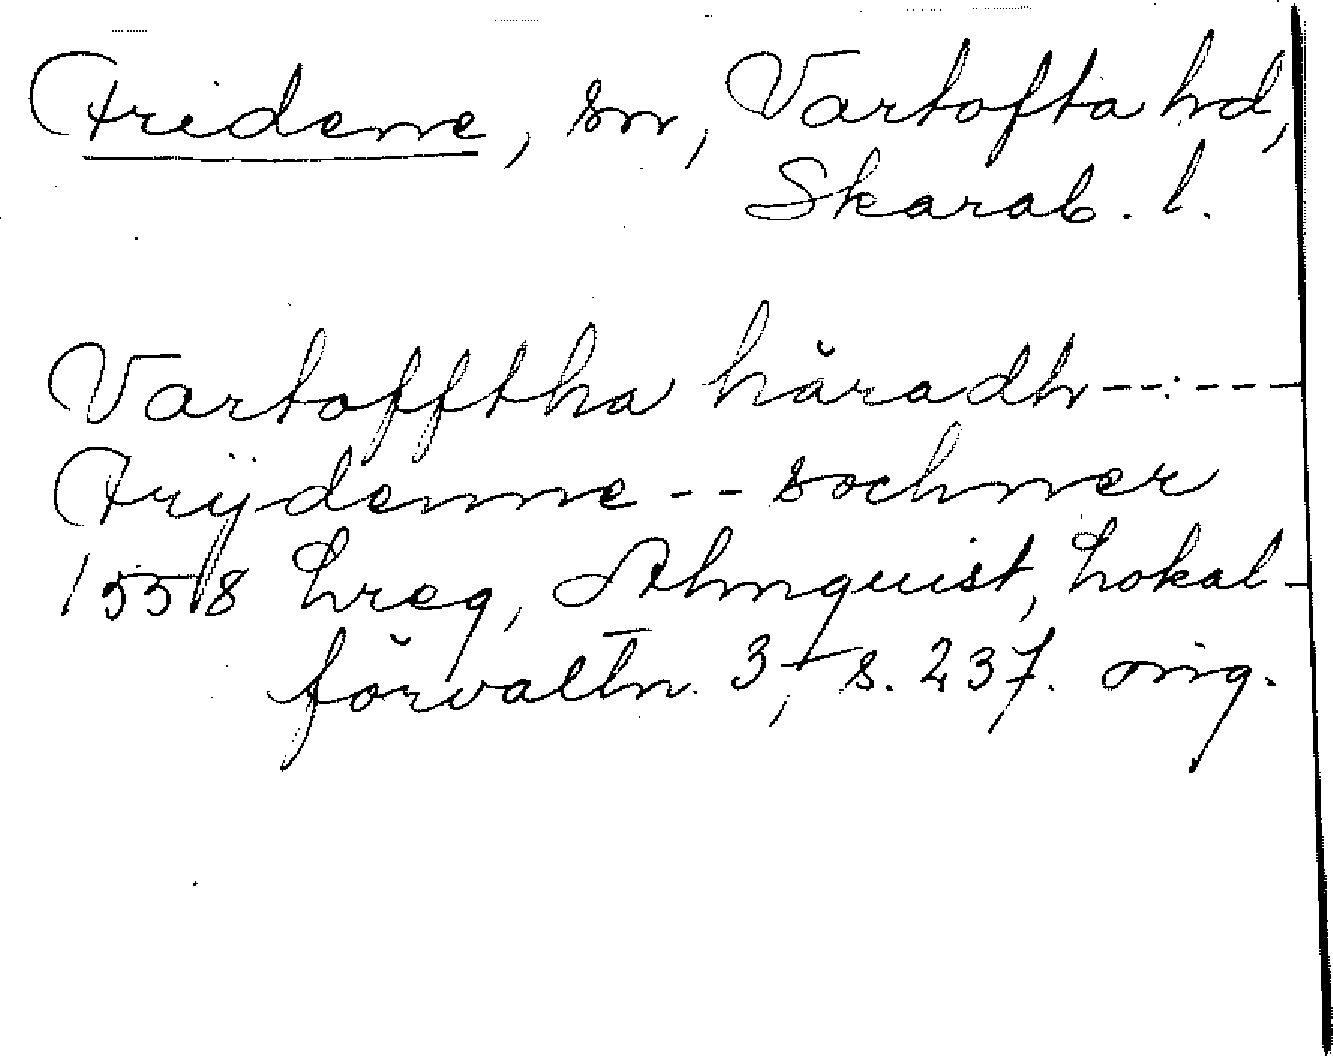 Fridene, sn, Vartofta hd,
Skarab. l.
Vartofftha häradh --:---
Frijdenne -- sochner
1558 Lreg, Almquist, Lokal-
förvaltn. 3, s. 237. orig.